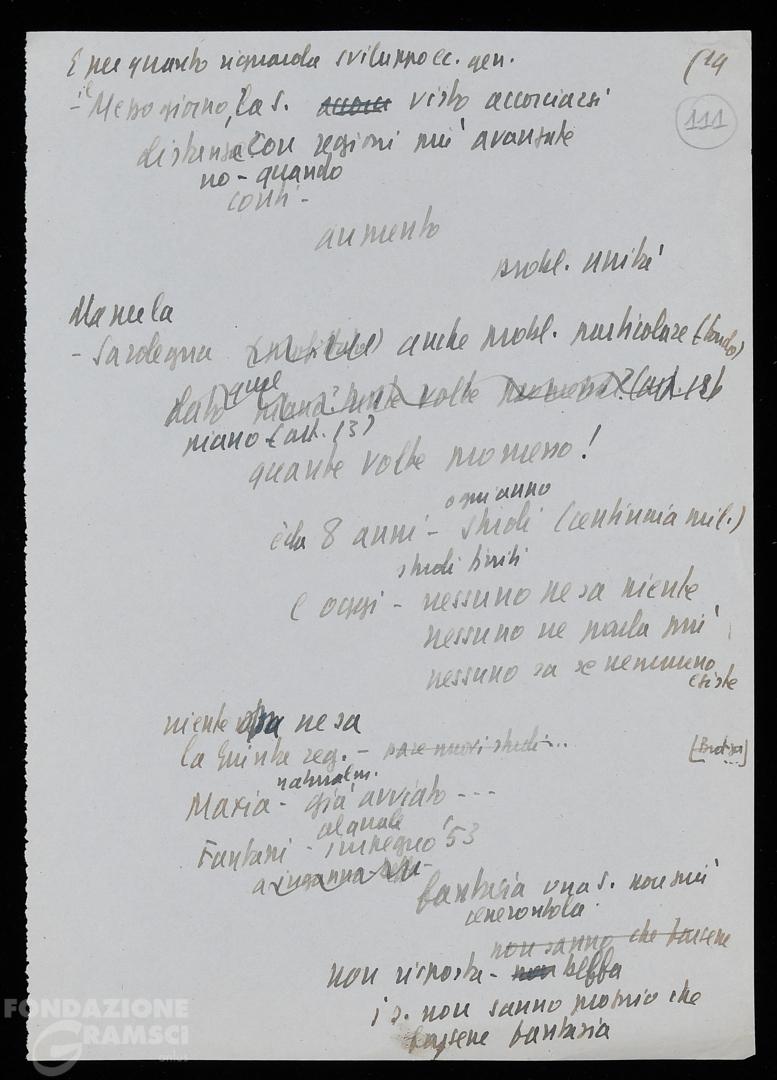 E per quanto riguarda sviluppo ec. gen. (14
111
- il Mezzogiorno, la S. visto accorciarsi
distanze con regioni più avanzate
no - quando
conti -
aumento
probl. unità
Ma per la
- Sardegna anche probl. particolare (fondo)
dato quel volte (art. 13)
piano (art. 13)
quante volte promesso!
ogni anno
è da 8 anni - studi (centinaia mil.)
studi finiti
e oggi - nessuno ne sa niente
nessuno ne parla più
nessuno sa se nemmeno
esiste
niente ne sa
la Giunta reg. - pare nuovi studi...
naturalm.
Maxia - già avviato ---
al quale
Fanfani - impegno '53
fantasia una S. non più
cenerentola
non sanno che farsene
non risposta - non beffa
i s. non sanno proprio che
farsene fantasia
FONDAZIONE
GRAMSCI
onlus